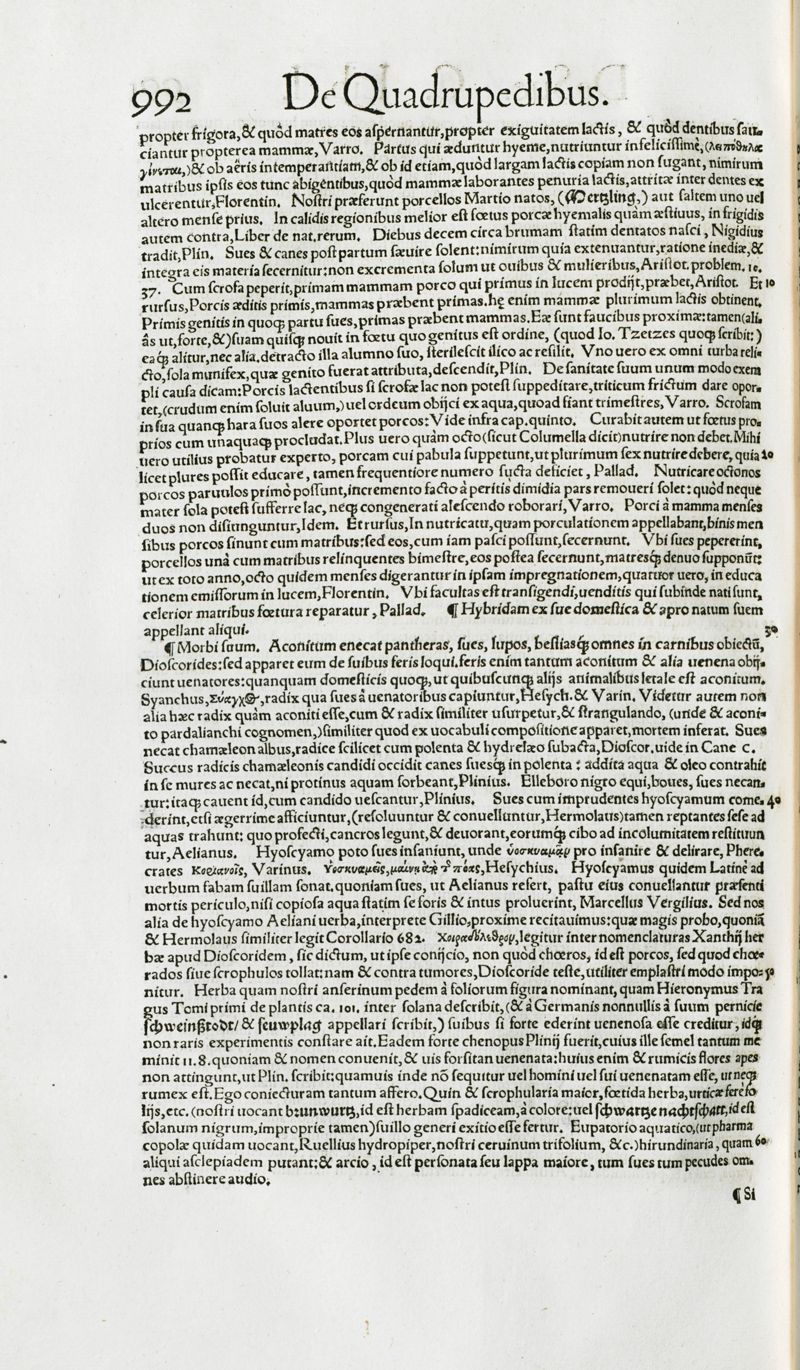 992 De Quadrupedibus.
propter frigora, & quòd matres eos aspernantur, propter exiguitatem lactis, & quòd dentibus sau-
ciantur propterea mammæ, Varro. Partus qui æduntur hyeme, nutriuntur infelicissimè,
& ob aëris intemperantiam, & ob id etiam, quòd largam lactis copiam non sugant, nimirum
matribus ipsis eos tunc abigentibus, quòd mammæ laborantes penuria lactis, attritæ inter dentes ex
ulcerentur, Florentin. Nostri præferunt porcellos Martio natos, (Mertzling,) aut saltem uno uel
altero mense prius. In calidis regionibus melior est fœtus porcæ hyemalis quàm æstiuus, in frigidis
autem contra, Liber de nat. rerum. Diebus decem circa brumam statim dentatos nasci, Nigidius
tradit, Plin. Sues & canes post partum sæuire solent: nimirum quia extenuantur, ratione inediæ, &
integra eis materia secernitur: non excrementa solum ut ouibus & mulieribus, Aristot. problem. 10.
37. Cum scrofa peperit, primam mammam porco qui primus in lucem prodijt, præbet, Aristot. Et 10
rursus, Porcis æditis primis, mammas præbent primas. hę enim mammæ plurimum lactis obtinent.
Primis genitis in quoq; partu sues, primas præbent mammas. Eæ sunt faucibus proximæ: tamen (ali-
âs ut, forte, &) suam quisq; nouit in fœtu quo genitus est ordine, (quod Io. Tzetzes quoq; scribit:)
eaq; alitur, nec alia. detracto illa alumno suo, sterilescit ilico ac resilit. Vno uero ex omni turba reli-
cto, sola munifex, quæ genito fuerat attributa, descendit, Plin. De sanitate suum unum modo exem
pli causa dicam: Porcis lactentibus si scrofæ lac non potest suppeditare, triticum frictum dare opor-
tet, (crudum enim soluit aluum,) uel ordeum obijci ex aqua, quoad fiant trimestres, Varro. Scrofam
in sua quanq; hara suos alere oportet porcos: Vide infra cap. quinto. Curabit autem ut fœtus pro-
prios cum unaquaq; procludat. Plus uero quàm octo (sicut Columella dicit) nutrire non debet. Mihi
uero utilius probatur experto, porcam cui pabula suppetunt, ut plurimum sex nutrire debere, quia 20
licet plures possit educare, tamen frequentiore numero sucta deficiet, Pallad. Nutricare octonos
porcos paruulos primò possunt, incremento facto à peritis dimidia pars remoueri solet: quòd neque
mater sola potest sufferre lac, neq; congenerati alescendo roborari, Varro. Porci à mamma menses
duos non disiunguntur, Idem. Et rursus, In nutricatu, quam porculationem appellabant, binis men
sibus porcos sinunt cum matribus: sed eos, cum iam pasci possunt, secernunt. Vbi sues pepererint,
porcellos unà cum matribus relinquentes bimestre, eos postea secernunt, matresq; denuo supponūt:
ut ex toto anno, octo quidem menses digerantur in ipsam impregnationem, quatuor uero, in educa
tionem emissorum in lucem, Florentin. Vbi facultas est transigendi, uenditis qui subinde nati sunt,
celerior matribus fœtura reparatur, Pallad. ¶ Hybridam ex sue domestica & apro natum suem
appellant aliqui. 30
¶ Morbi suum. Aconitum enecat pantheras, sues, lupos, bestiasq; omnes in carnibus obiectū,
Dioscorides: sed apparet eum de suibus feris loqui. feris enim tantum aconitum & alia uenena obij-
ciunt uenatores: quanquam domesticis quoq;, ut quibuscunq; alijs animalibus letale est aconitum.
Syanchus, Σύαγχος, radix qua sues à uenatoribus capiuntur, Hesych. & Varin. Videtur autem non
alia hæc radix quàm aconiti esse, cum & radix similiter usurpetur, & strangulando, (unde & aconi-
to pardalianchi cognomen,) similiter quod ex uocabuli compositione apparet, mortem inferat. Sues
necat chamæleon albus, radice scilicet cum polenta & hydrelæo subacta, Dioscor. uide in Cane c.
Succus radicis chamæleonis candidi occidit canes suesq; in polenta: addita aqua & oleo contrahit
in se mures ac necat, ni protinus aquam sorbeant, Plinius. Elleboro nigro equi, boues, sues necan-
tur: itaq; cauent id, cum candido uescantur, Plinius. Sues cum imprudentes hyoscyamum come- 40
derint, etsi ægerrime afficiuntur, (resoluuntur & conuelluntur, Hermolaus) tamen reptantes sese ad
aquas trahunt: quo profecti, cancros legunt, & deuorant, eorumq; cibo ad incolumitatem restituun
tur, Aelianus. Hyoscyamo poto sues insaniunt, unde ὑοσκυαμᾷν pro insanire & delirare, Phere-
crates Κοριαννοῖς, Varinus. Hesychius. Hyoscyamus quidem Latinè ad
uerbum fabam suillam sonat. quoniam sues, ut Aelianus refert, pastu eius conuelluntur præsenti
mortis periculo, nisi copiosa aqua statim se foris & intus proluerint, Marcellus Vergilius. Sed nos
alia de hyoscyamo Aeliani uerba, interprete Gillio, proxime recitauimus: quæ magis probo, quoniā
& Hermolaus similiter legit Corollario 682. Χοιραδόλεθρον, legitur inter nomenclaturas Xanthij her
bæ apud Dioscoridem, sic dictum, ut ipse conijcio, non quòd chœros, id est porcos, sed quod chœ-
rados siue scrophulos tollat: nam & contra tumores, Dioscoride teste, utiliter emplastri modo impo- 50
nitur. Herba quam nostri anserinum pedem à foliorum figura nominant, quam Hieronymus Tra
gus Tomi primi de plantis ca. 101. inter solana describit, (& à Germanis nonnullis à suum pernicie
schweinßtodt/ & seuwplag appellari scribit,) suibus si forte ederint uenenosa esse creditur, idq;
non raris experimentis constare ait. Eadem forte chenopus Plinij fuerit, cuius ille semel tantum me
minit 11.8. quoniam & nomen conuenit, & uis forsitan uenenata: huius enim & rumicis flores apes
non attingunt, ut Plin. scribit: quamuis inde nō sequitur uel homini uel sui uenenatam esse, ut neq;
rumex est. Ego coniecturam tantum affero. Quin & scrophularia maior, fœtida herba, urticæ ferè fo
lijs, etc. (nostri uocant braunwurtz, id est herbam spadiceam, à colore: uel schwartze nachtschatt, id est
solanum nigrum, improprie tamen) suillo generi exitio esse fertur. Eupatorio aquatico, (ut pharma
copolæ quidam uocant, Ruellius hydropiper, nostri ceruinum trifolium, &c.) hirundinaria, quam 60
aliqui asclepiadem putant: & arcio, id est personata seu lappa maiore, tum sues tum pecudes om-
nes abstinere audio.
¶ Si